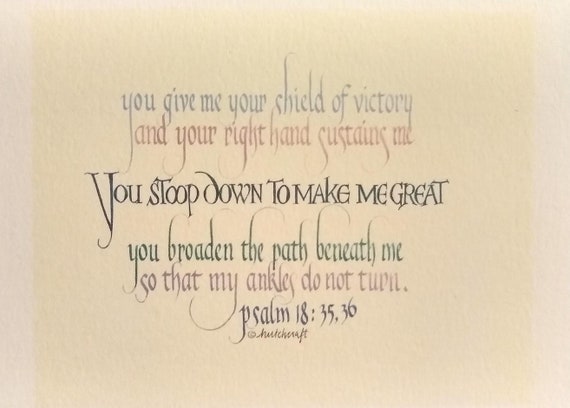 you give me your shield of victory
and your right hand sustains me
You stoop down to make me great
you broaden the path beneath me
so that my ankles do not turn.
psalm 18:35,36
© hutchcraft